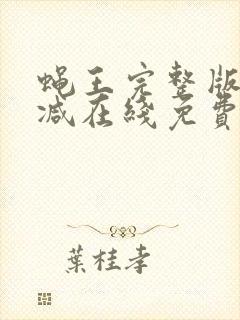 蝇王完整版
减在綫免費
葉桂孝